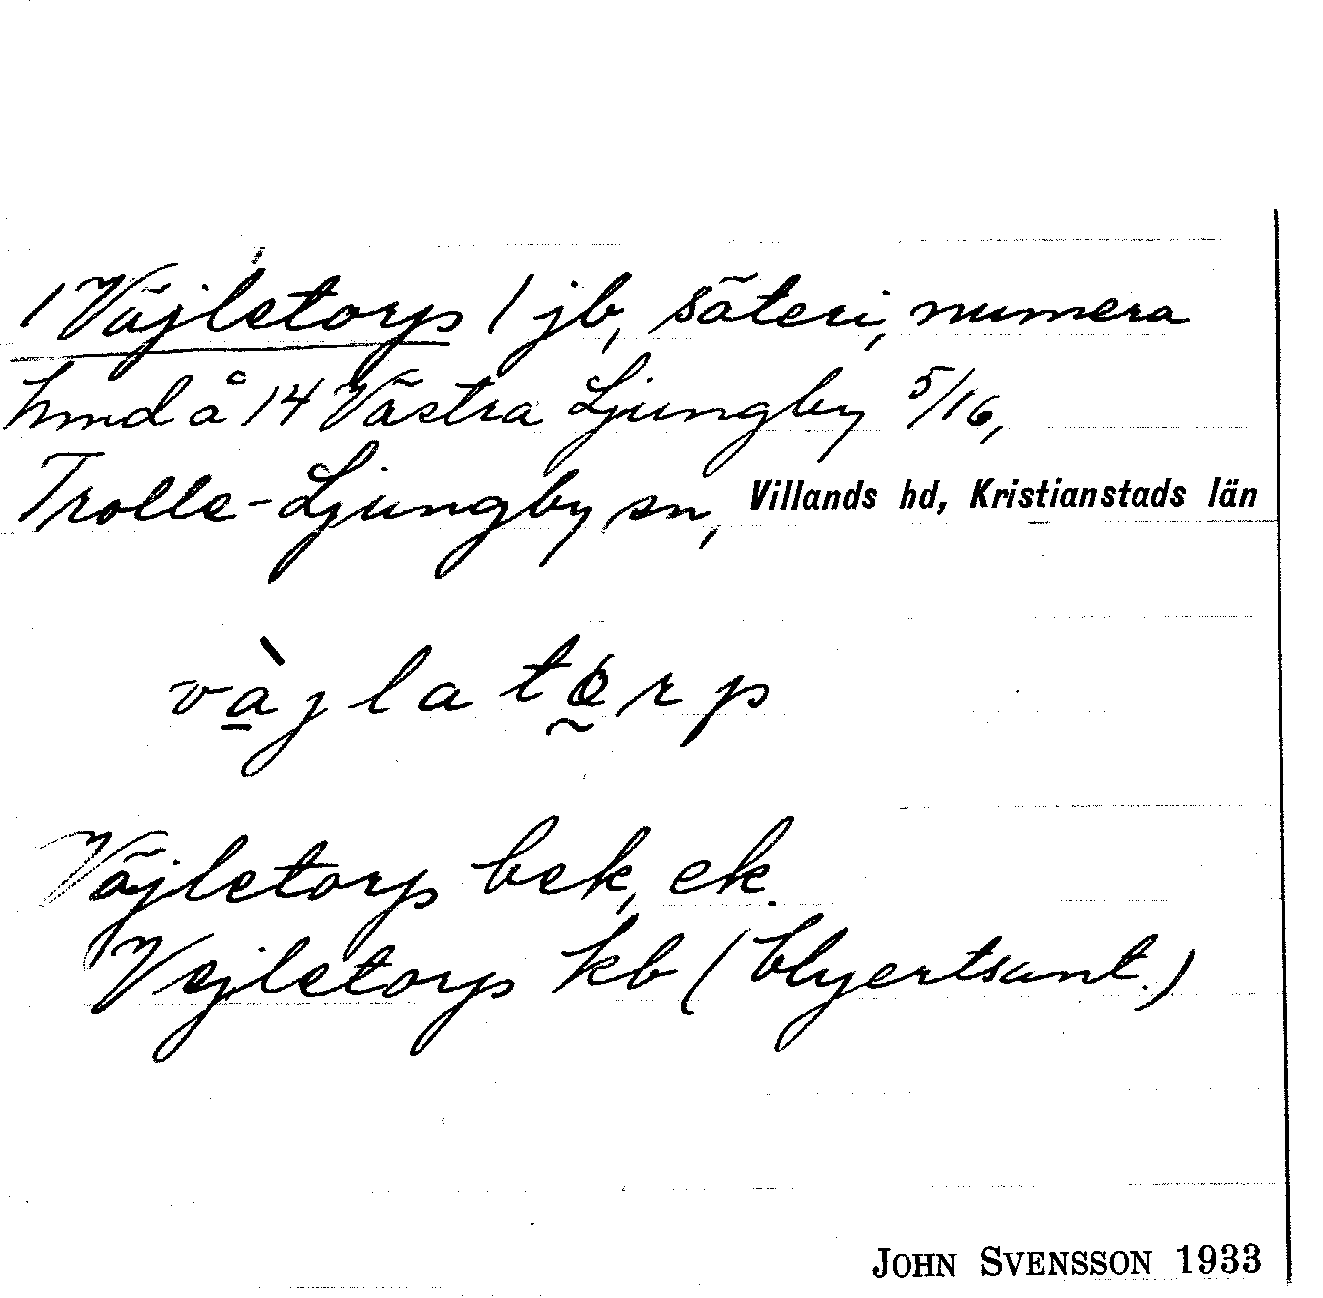 1 Väjletorp 1 jb, säteri, numera
hmd å 14 Västra Ljungby 5/16,
Trolle-Ljungby sn, Villands hd, Kristianstads län
và̱jlatø̰rp
Väjletorp bek, ek.
Vejletorp kb (blyertsant.)
JOHN SVENSSON 1933